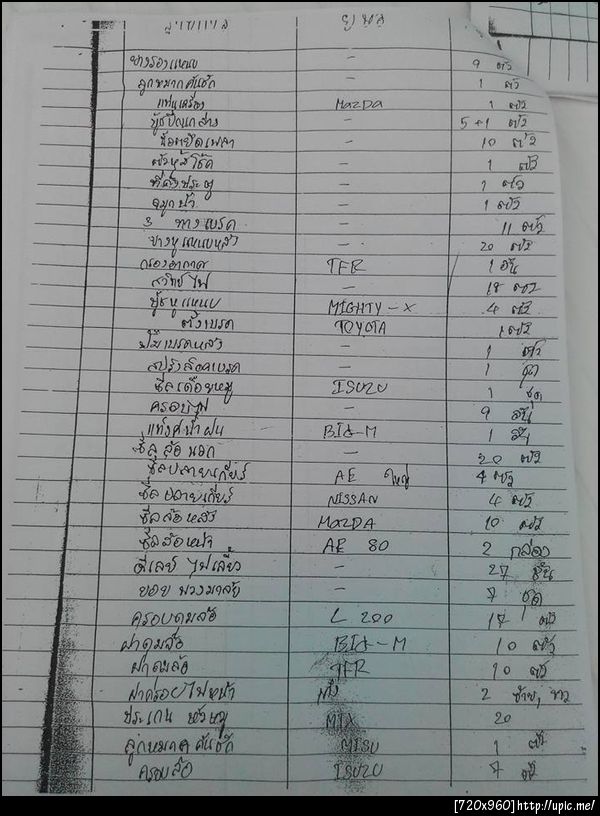 ยางรองแหนบ - 9 ตัว
ลูกหมากคันชัก - 1 ตัว
แท่นเครื่อง MAZDA 1 ตัว
- 5+1 ตัว
- 10 ตัว
- 1 ตัว
- 1 ตัว
จมูกน้ำ - 1 ตัว
3 ทางเบรค - 11 ตัว
ยางหูแหนบหลัง - 20 ตัว
กรองอากาศ TFR 1 อัน
สวิทย์ไฟ - 18 ตัว
บู๊ชหูแหนบ MIGHTY-X 4 ตัว
ตั้งเบรค TOYOTA 1 ตัว
ปั๊มเบรคหลัง - 1 ตัว
สปริงล็อคเบรค - 1 ชุด
ซีลเดือยหมู ISUZU 1 ชุด
ครอบไฟ - 9 อัน
BIG-M 1 อัน
ซีลล้อนอก - 20 ตัว
ซีลปลายเกียร์ AE ใหญ่ 4 ตัว
ซีลปลายเกียร์ NISSAN 4 ตัว
ซีลล้อหลัง MAZDA 10 ตัว
ซีลล้อหน้า AE 80 2 กล่อง
ดีเลย์ไฟเลี้ยว - 27 อัน
ยอยพวงมาลัย - 7 ชุด
ครอบดุมล้อ L 200 17 ตัว
ฝาดุมล้อ BIG-M 10 ตัว
ฝาดุมล้อ TFR 10 ตัว
ฝาครอบไฟหน้า 2 ซ้าย, ขวา
ประเกน หัวหมู MTX 20
ลูกหมากคันชัก MISU 1 ตัว
ครอบล้อ ISUZU 7 ตัว
[720x960]http://upic.me/